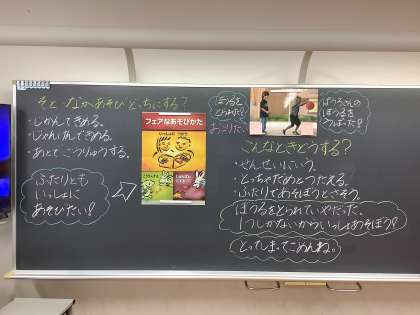 そと なかあそび どっちにする?
・じかんできめる。
・じゃんけんできめる。
・あとで ごうりゅうする。
ふたりとも
いっしょに
あそびたい!
フェアなあそびかた
ぼうるを
とられた!
おこりたい
こんなときどうする?
・せんせいにいう。
・とっちゃだめとつたえる。
・ふたりであそぼうとさそう。
ぼうるをとられていやだった。
1つしかないからいっしょあそぼう?
とってしまってごめんね。